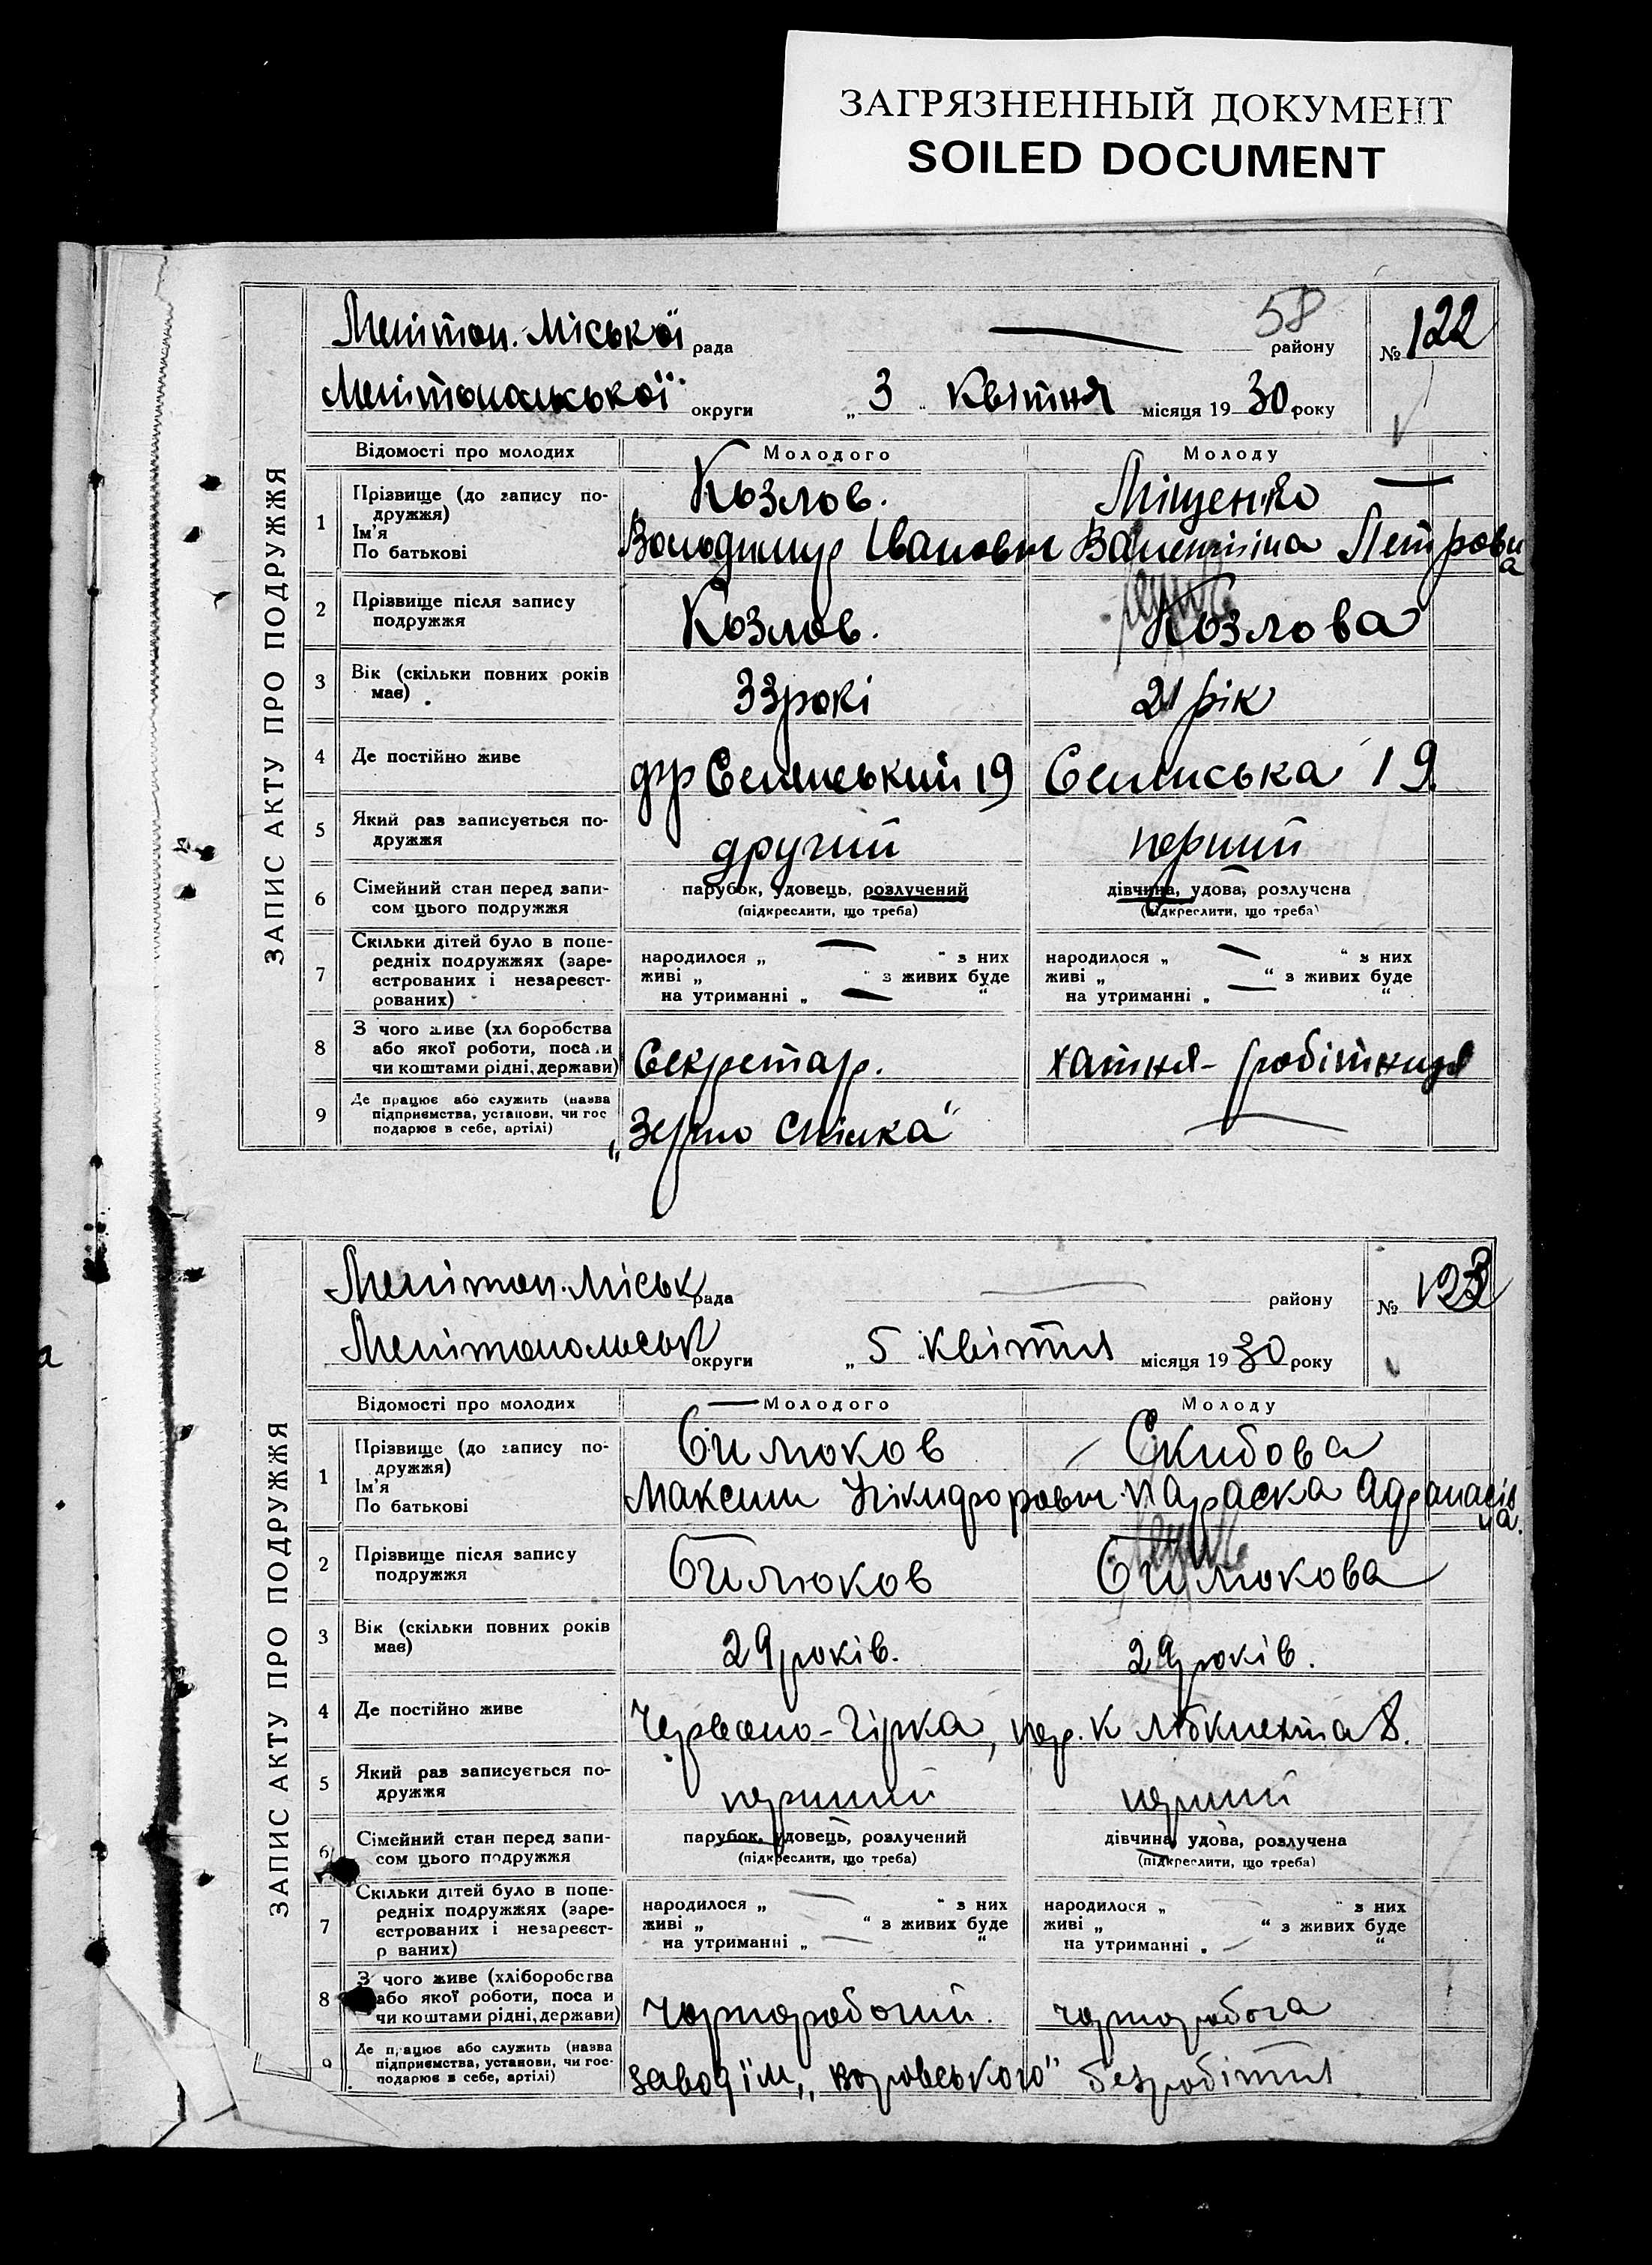 ЗАГРЯЗНЕННЫЙ ДОКУМЕНТ
SOILED DOCUMENT
ЗАПИС АКТУ ПРО ПОДРУЖЖЯ
58
Меліпоп. Міської рада — району № 122
Мелітопольської округи „3" Квітня місяця 1930 року
Відомості про молодих Молодого Молоду
1 Прізвище (до запису по- Козлов. Міщенко —
дружжя)
Ім'я Володимир Іванович Валентіна Петровн
По батькові а
2 Прізвище після запису Козлов. Козлова
подружжя
3 Вік (скільки повних років 33 рокі 21 рік
має)
4 Де постійно живе 19 19
5 Який раз записується по- другий перший
дружжя
6 Сімейний стан перед запи- парубок, удовець, розлучений дівчина, удова, розлучена
сом цього подружжя (підкреслити, що треба) (підкреслити, що треба)
7 Скільки дітей було в попе-
редніх подружжях (заре- народилося „ — " з них народилося „ — " з них
єстрованих і незареєст- живі „ " з живих буде живі „ " з живих буде
рованих) на утриманні „ — " на утриманні „ — "
8 З чого живе (хл боробства
або якої роботи, поса и Секретар. хатня-робітниця
чи коштами рідні, держави)
9 Де працює або служить (назва
підприємства, установи, чи гос „Зерно Спілка" —
подарює в себе, артілі)
ЗАПИС АКТУ ПРО ПОДРУЖЖЯ
Мелітоп. Міськ рада — району № 123
Мелітопольськ округи „5" Квітня місяця 1930 року
Відомості про молодих — Молодого Молоду
1 Прізвище (до запису по- Билюков Скибова
дружжя)
Ім'я Максим Нікидорович Параска
По батькові
2 Прізвище після запису Билюков Билюкова
подружжя
3 Вік (скільки повних років 29 років. 29 років.
має)
4 Де постійно живе Червоно-Гірка, пер. К Лібкнехта 8.
5 Який раз записується по- перший перший
дружжя
6 Сімейний стан перед запи- парубок, удовець, розлучений дівчина, удова, розлучена
сом цього подружжя (підкреслити, що треба) (підкреслити, що треба)
7 Скільки дітей було в попе-
редніх подружжях (заре- народилося „ — " з них народилося „ " з них
єстрованих і незареєст- живі „ " з живих буде живі „ " з живих буде
р ваних) на утриманні „ — " на утриманні „ — "
8 З чого живе (хліборобства
або якої роботи, поса и чорноробочий. чорноробоча
чи коштами рідні, держави)
9 Де працює або служить (назва
підприємства, установи, чи гос- завод ім „Воровського" безробітня
подарює в себе, артілі)